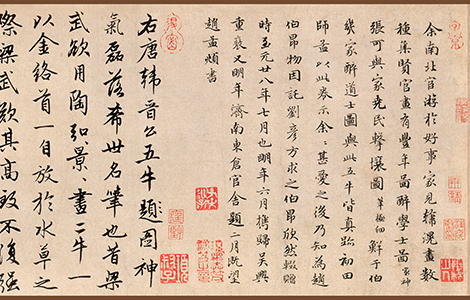 余南北宦游於好事家見韓滉畫數
種集賢官畫有豐年圖醉學士圖最神
張可與家堯民擊壤圖筆極細鮮于伯
幾家醉道士圖與此五牛皆真跡初田
師孟以此卷示余余甚愛之後乃知為趙
伯昂物因託劉彥方求之伯昂欣然輟贈
時至元廿八年七月也明年六月携歸吳興
重裝又明年濟南東倉官舍題二月既望
趙孟頫書
右唐韓晉公五牛題圖神
氣磊落希世名筆也昔梁
武欲用陶弘景畫二牛一
以金絡首一自放於水草之
際梁武歎其高致不復強